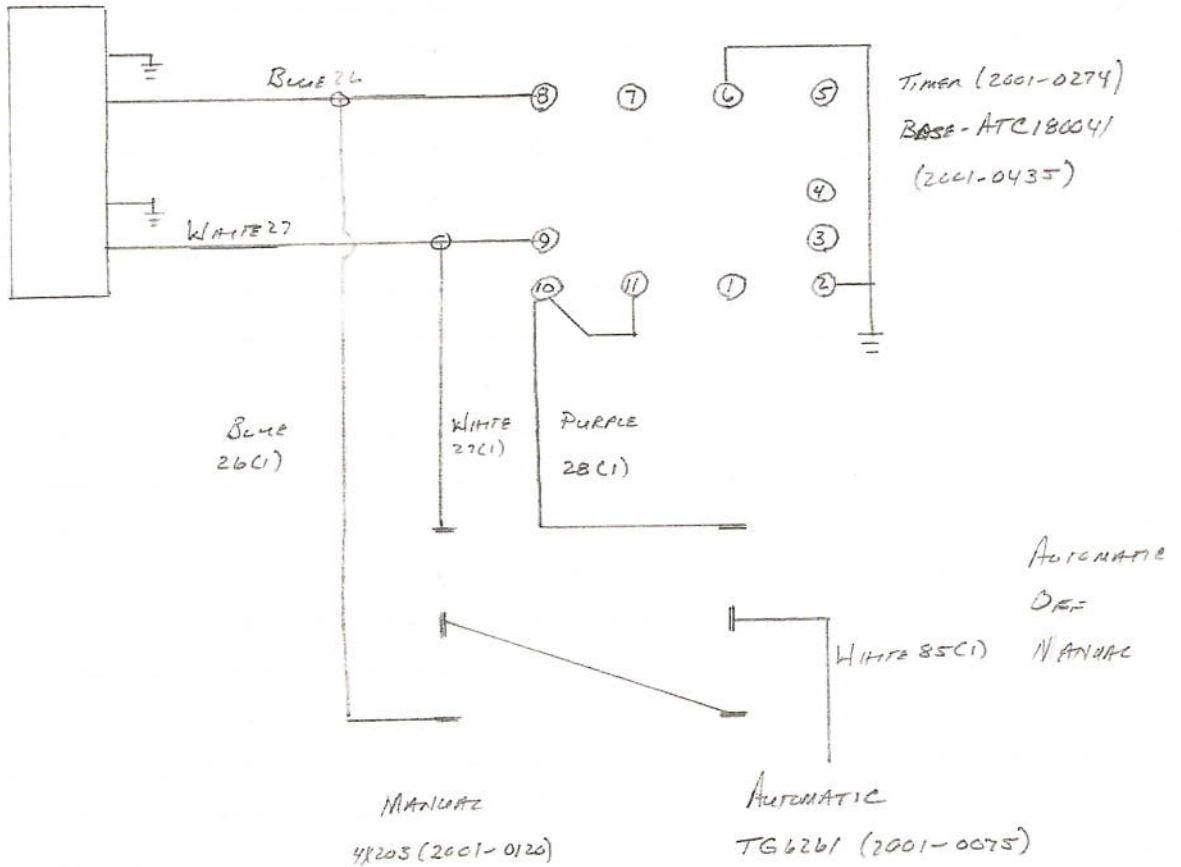 BLUE 26
8
7
6
5
TIMER (2001-0274)
BASE-ATC180041
(2001-0435)
4
WHITE 27
9
3
10
11
1
2
BLUE
26(1)
WHITE
27(1)
PURPLE
28(1)
AUTOMATIC
OFF
MANUAL
WHITE 85(1)
MANUAL
4X203 (2001-0120)
AUTOMATIC
TG6261 (2001-0075)